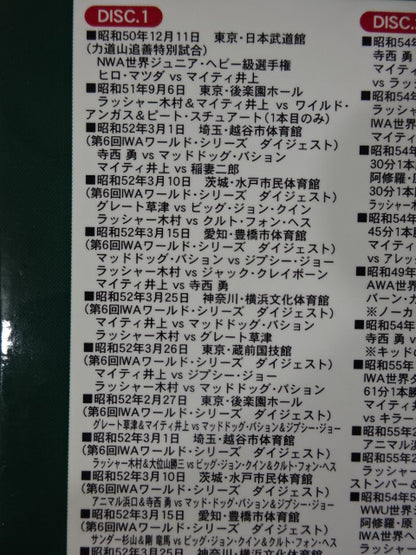 DISC.1
■昭和50年12月11日　東京・日本武道館
(力道山追善特別試合)
NWA世界ジュニア・ヘビー級選手権
ヒロ・マツダ vs マイティ井上
■昭和51年9月6日　東京・後楽園ホール
ラッシャー木村&マイティ井上 vs ワイルド・
アンガス&ピート・スチュアート(1本目のみ)
■昭和52年3月1日　埼玉・越谷市体育館
(第6回IWAワールド・シリーズ　ダイジェスト)
寺西 勇 vs マッドドッグ・バション
マイティ井上 vs 稲妻二郎
■昭和52年3月10日　茨城・水戸市民体育館
(第6回IWAワールド・シリーズ　ダイジェスト)
グレート草津 vs ビッグ・ジョン・クイン
ラッシャー木村 vs クルト・フォン・ヘス
■昭和52年3月15日　愛知・豊橋市体育館
(第6回IWAワールド・シリーズ　ダイジェスト)
マッドドッグ・バション vs ジプシー・ジョー
ラッシャー木村 vs ジャック・クレイボーン
マイティ井上 vs 寺西 勇
■昭和52年3月25日　神奈川・横浜文化体育館
(第6回IWAワールド・シリーズ　ダイジェスト)
マイティ井上 vs マッドドッグ・バション
ラッシャー木村 vs グレート草津
■昭和52年3月26日　東京・蔵前国技館
(第6回IWAワールド・シリーズ　ダイジェスト)
マイティ井上 vs ジプシー・ジョー
ラッシャー木村 vs マッドドッグ・バション
■昭和52年2月27日　東京・後楽園ホール
(第6回IWAワールド・シリーズ　ダイジェスト)
グレート草津&マイティ井上 vs マッドドッグ・バション&ジプシー・ジョー
■昭和52年3月1日　埼玉・越谷市体育館
(第6回IWAワールド・シリーズ　ダイジェスト)
ラッシャー木村&大位山勝三 vs ビッグ・ジョン・クイン&クルト・フォン・ヘス
■昭和52年3月10日　茨城・水戸市民体育館
(第6回IWAワールド・シリーズ　ダイジェスト)
アニマル浜口&寺西 勇 vs マッド・ドッグ・バション&ジプシー・ジョー
■昭和52年3月15日　愛知・豊橋市体育館
(第6回IWAワールド・シリーズ　ダイジェスト)
サンダー杉山&剛 竜馬 vs ビッグ・ジョン・クイン&クルト・フォン・ヘス
■昭和52年3月25日　神奈川・横浜文化体育館
DISC.
■昭和54年
寺西 勇
マイティ
vs ラッ
■昭和54年
IWA世
■昭和54年
30分1本
阿修羅・原
30分1本
ラッシャー木村
■昭和54年
45分1本
マイティ
vs アレッ
■昭和49年
AWA世界
バーン・
※ノーカ
■昭和54年
寺西 勇 v
※キッド
■昭和55年
IWA世界
61分1本勝
マイティ井
vs キラー
■昭和55年2
アニマル浜
■昭和55年
ラッシャー
ストンパー&
■昭和54年5
WWU世界ジ
阿修羅・原
■昭和54年
IWA世界